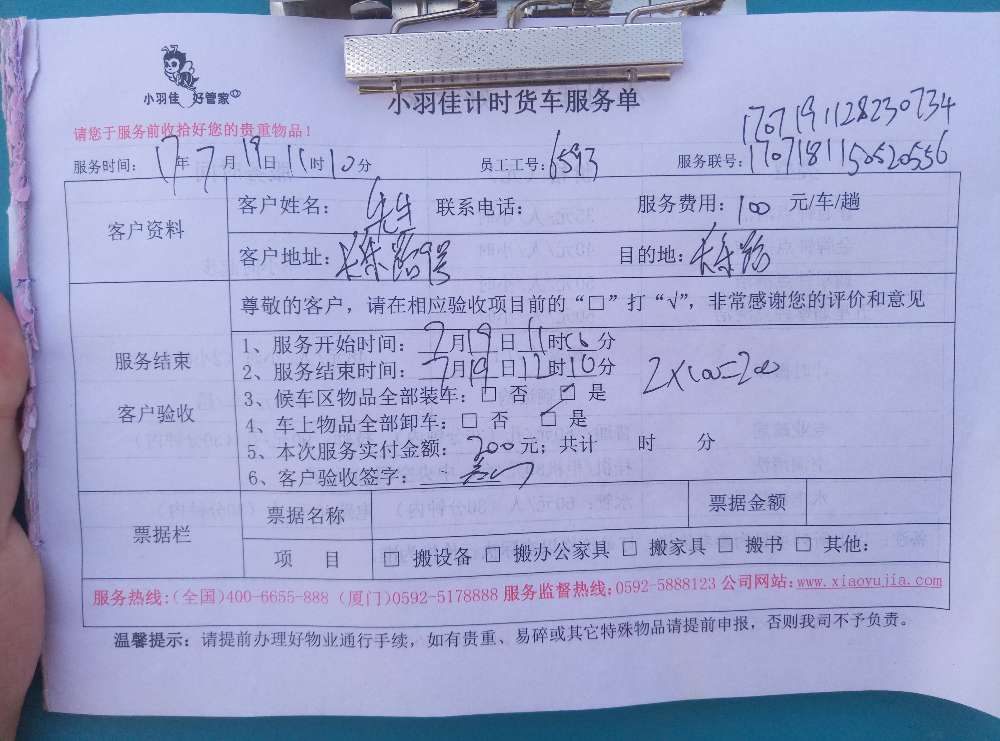 小羽佳 好管家
小羽佳计时货车服务单
请您于服务前收拾好您的贵重物品!
1707191128230734
服务时间: 17年7月19日11时10分 员工工号: 6593 服务联号: 1707181150520556
客户资料
客户姓名: 先生 联系电话: 服务费用: 100 元/车/趟
客户地址: 长乐路 目的地: 长乐路
尊敬的客户，请在相应验收项目前的“□”打“√”，非常感谢您的评价和意见
服务结束
客户验收
1、服务开始时间: 7月19日11时06分
2、服务结束时间: 7月19日12时10分
2×100=200
3、候车区物品全部装车: □ 否 ☑ 是
4、车上物品全部卸车: □ 否 ☑ 是
5、本次服务实付金额: 200元; 共计 时 分
6、客户验收签字:
票据栏
票据名称 票据金额
项 目 □ 搬设备 □ 搬办公家具 □ 搬家具 □ 搬书 □ 其他:
服务热线:(全国)400-6655-888 (厦门)0592-5178888 服务监督热线:0592-5888123 公司网站:www.xiaoyujia.com
温馨提示: 请提前办理好物业通行手续，如有贵重、易碎或其它特殊物品请提前申报，否则我司不予负责。